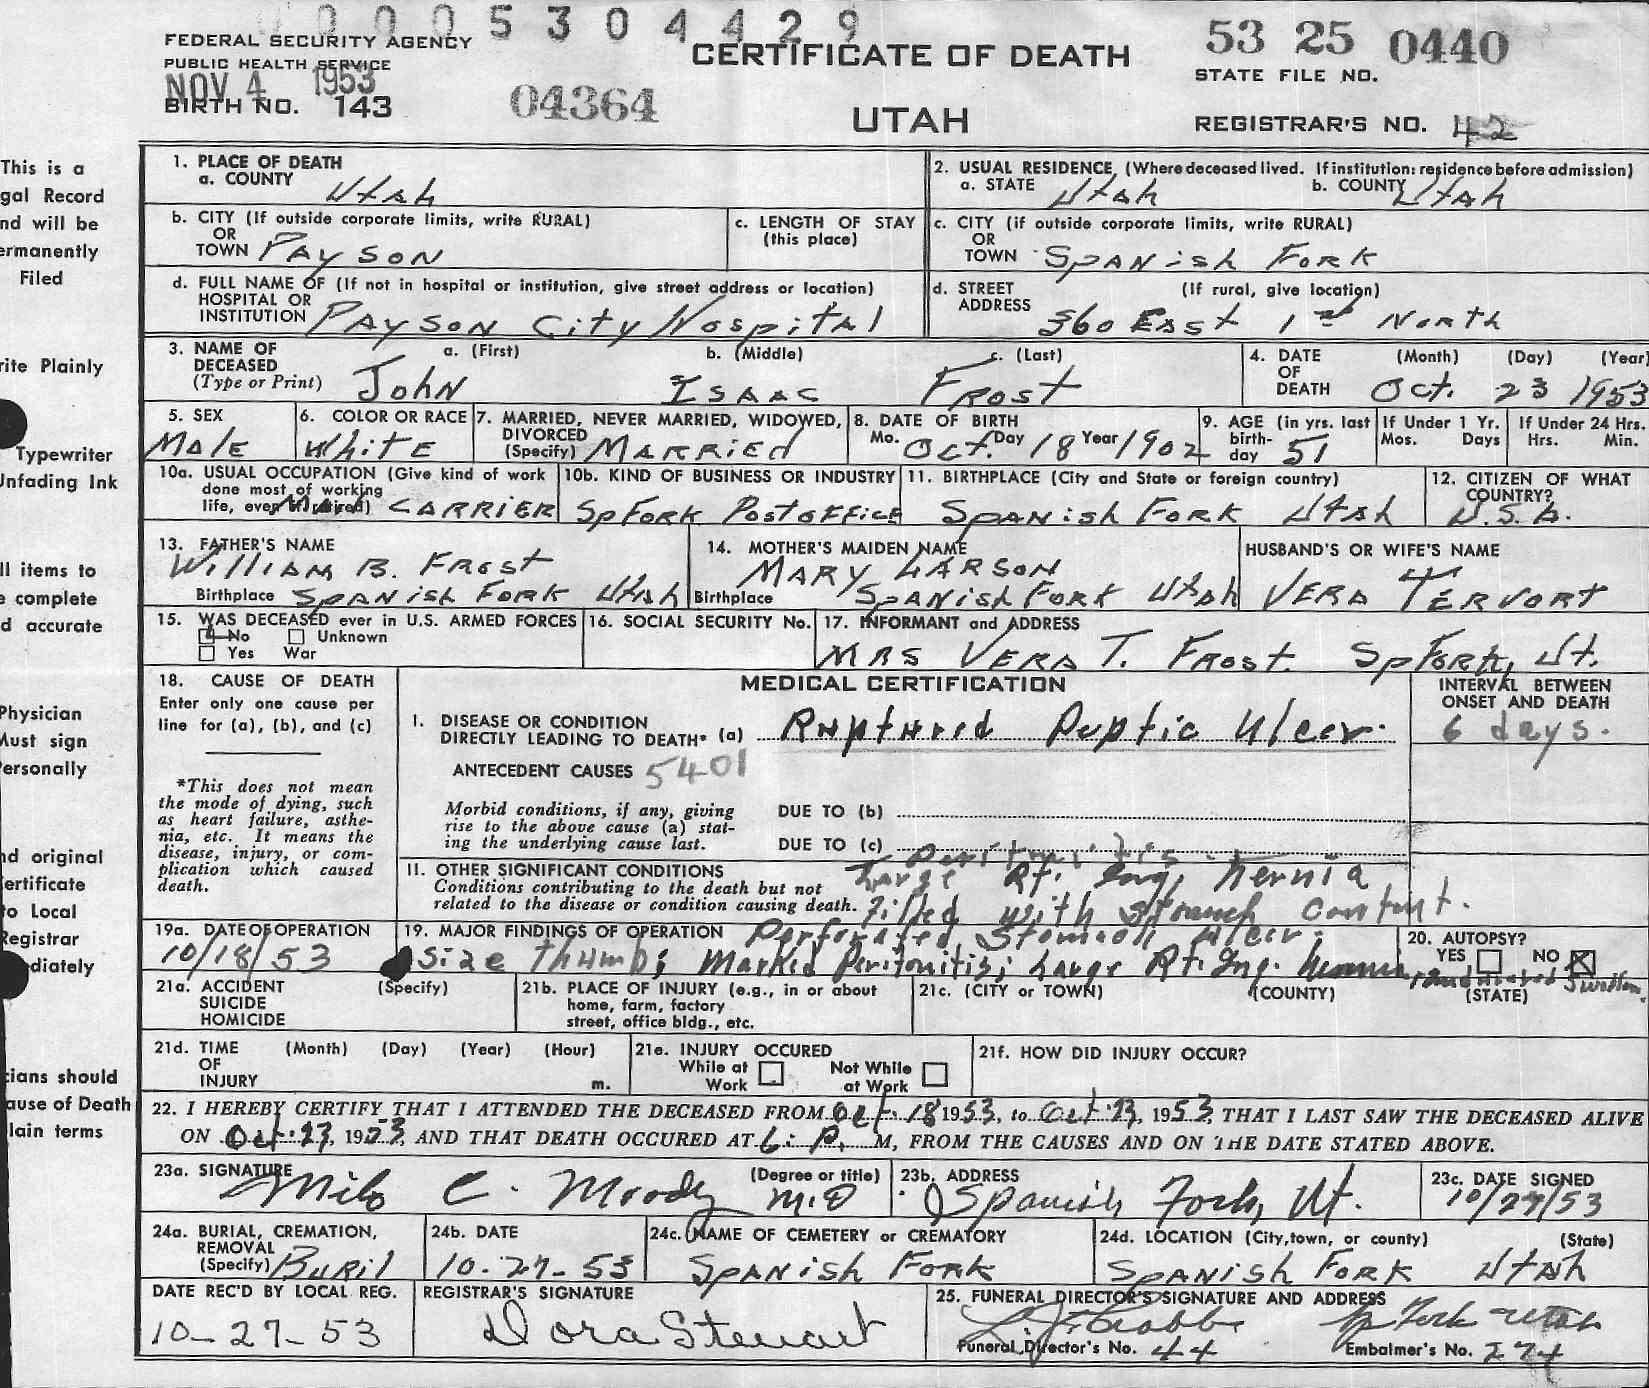 0005304429
FEDERAL SECURITY AGENCY
PUBLIC HEALTH SERVICE
NOV 4 1953
BIRTH NO. 143
04364
CERTIFICATE OF DEATH
UTAH
53 25 0440
STATE FILE NO.
REGISTRAR'S NO. 42
This is a
gal Record
nd will be
ermanently
Filed
rite Plainly
Typewriter
Unfading Ink
ll items to
e complete
d accurate
Physician
Must sign
ersonally
nd original
ertificate
to Local
Registrar
diately
cians should
ause of Death
lain terms
1. PLACE OF DEATH
a. COUNTY Utah
2. USUAL RESIDENCE (Where deceased lived. If institution: residence before admission)
a. STATE Utah b. COUNTY Utah
b. CITY (If outside corporate limits, write RURAL)
OR
TOWN Payson
c. LENGTH OF STAY
(this place)
c. CITY (if outside corporate limits, write RURAL)
OR
TOWN Spanish Fork
d. FULL NAME OF (If not in hospital or institution, give street address or location)
HOSPITAL OR
INSTITUTION Payson City Hospital
d. STREET (If rural, give location)
ADDRESS 360 East 1st North
3. NAME OF DECEASED (Type or Print)
a. (First) b. (Middle) c. (Last)
John Isaac Frost
4. DATE OF DEATH (Month) (Day) (Year)
Oct. 23 1953
5. SEX
Male
6. COLOR OR RACE
White
7. MARRIED, NEVER MARRIED, WIDOWED,
DIVORCED
(Specify) Married
8. DATE OF BIRTH
Mo. Oct. Day 18 Year 1902
9. AGE (in yrs. last
birth-
day 51
If Under 1 Yr.
Mos. Days
If Under 24 Hrs.
Hrs. Min.
10a. USUAL OCCUPATION (Give kind of work
done most of working
life, even if retired) Mail Carrier
10b. KIND OF BUSINESS OR INDUSTRY
Sp Fork Post office
11. BIRTHPLACE (City and State or foreign country)
Spanish Fork Utah
12. CITIZEN OF WHAT
COUNTRY?
U.S.A.
13. FATHER'S NAME
William B. Frost
Birthplace Spanish Fork Utah
14. MOTHER'S MAIDEN NAME
Mary Larson
Birthplace Spanish Fork Utah
HUSBAND'S OR WIFE'S NAME
Vera Tervort
15. WAS DECEASED ever in U.S. ARMED FORCES
No Unknown
Yes War
16. SOCIAL SECURITY No.
17. INFORMANT and ADDRESS
Mrs Vera T. Frost. Sp Fork, Ut.
18. CAUSE OF DEATH
Enter only one cause per
line for (a), (b), and (c)
*This does not mean
the mode of dying, such
as heart failure, asthe-
nia, etc. It means the
disease, injury, or com-
plication which caused
death.
MEDICAL CERTIFICATION
INTERVAL BETWEEN
ONSET AND DEATH
I. DISEASE OR CONDITION
DIRECTLY LEADING TO DEATH* (a) Ruptured Peptic Ulcer.
6 days.
ANTECEDENT CAUSES 5401
Morbid conditions, if any, giving
rise to the above cause (a) stat-
ing the underlying cause last.
DUE TO (b)
DUE TO (c)
Peritonitis.
11. OTHER SIGNIFICANT CONDITIONS
Conditions contributing to the death but not
related to the disease or condition causing death.
Large Rt. Ing. hernia
Filled with stomach content.
19a. DATE OF OPERATION
10/18/53
19. MAJOR FINDINGS OF OPERATION
Perforated Stomach ulcer.
size thumb; Marked Peritonitis; Large Rt. Ing. hernia
20. AUTOPSY?
YES NO
21a. ACCIDENT (Specify)
SUICIDE
HOMICIDE
21b. PLACE OF INJURY (e.g., in or about
home, farm, factory
street, office bldg., etc.
21c. (CITY or TOWN) (COUNTY) (STATE)
21d. TIME (Month) (Day) (Year) (Hour)
OF
INJURY m.
21e. INJURY OCCURED
While at Work Not While at Work
21f. HOW DID INJURY OCCUR?
22. I HEREBY CERTIFY THAT I ATTENDED THE DECEASED FROM Oct. 18 1953, to Oct. 23, 1953, THAT I LAST SAW THE DECEASED ALIVE
ON Oct. 23, 1953, AND THAT DEATH OCCURED AT 6: P. M, FROM THE CAUSES AND ON THE DATE STATED ABOVE.
23a. SIGNATURE (Degree or title)
Milo C. Moody M.D
23b. ADDRESS
Spanish Fork, Ut.
23c. DATE SIGNED
10/27/53
24a. BURIAL, CREMATION,
REMOVAL
(Specify) Buril
24b. DATE
10-27-53
24c. NAME OF CEMETERY or CREMATORY
Spanish Fork
24d. LOCATION (City, town, or county) (State)
Spanish Fork Utah
DATE REC'D BY LOCAL REG.
10-27-53
REGISTRAR'S SIGNATURE
Dora Stewart
25. FUNERAL DIRECTOR'S SIGNATURE AND ADDRESS
Sp Fork Utah
Funeral Director's No. 44 Embalmer's No. 274